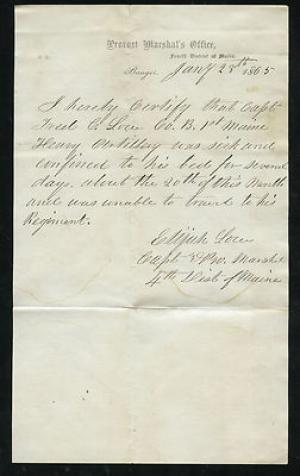 Provost Marshal's Office,
Fourth District of Maine,
Bangor, Jany 28th 1865
I hereby Certify that Capt
Fred C. Low Co. B. 1st Maine
Heavy Artillery was sick and
confined to his bed for several
days, about the 20th of this Month
and was unable to travel to his
Regiment.
Elijah Low
Capt & Pro. Marshal
4th Dist of Maine